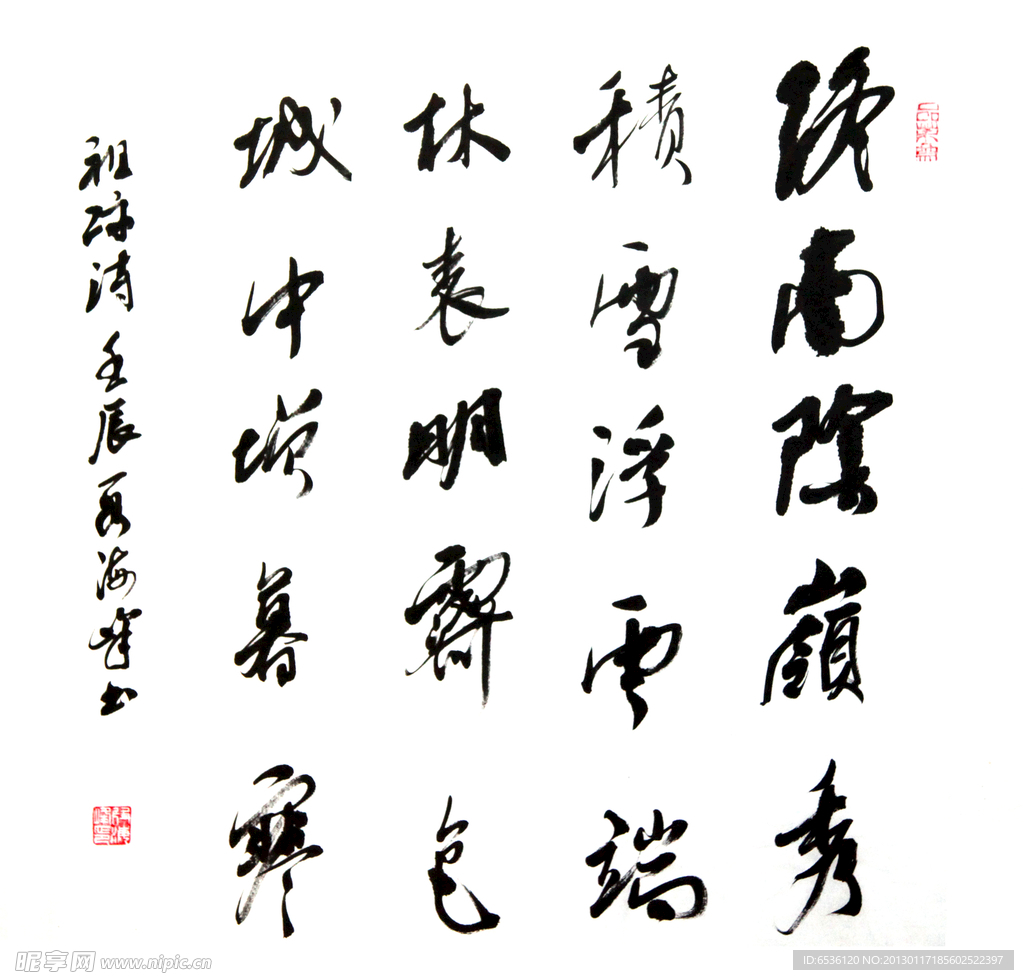 終南陰嶺秀
積雪浮雲端
林表明霽色
城中增暮寒
祖詠詩 壬辰夏海峰书
昵享网 www.nipic.cn
ID:6536120 NO:20130117185602522397